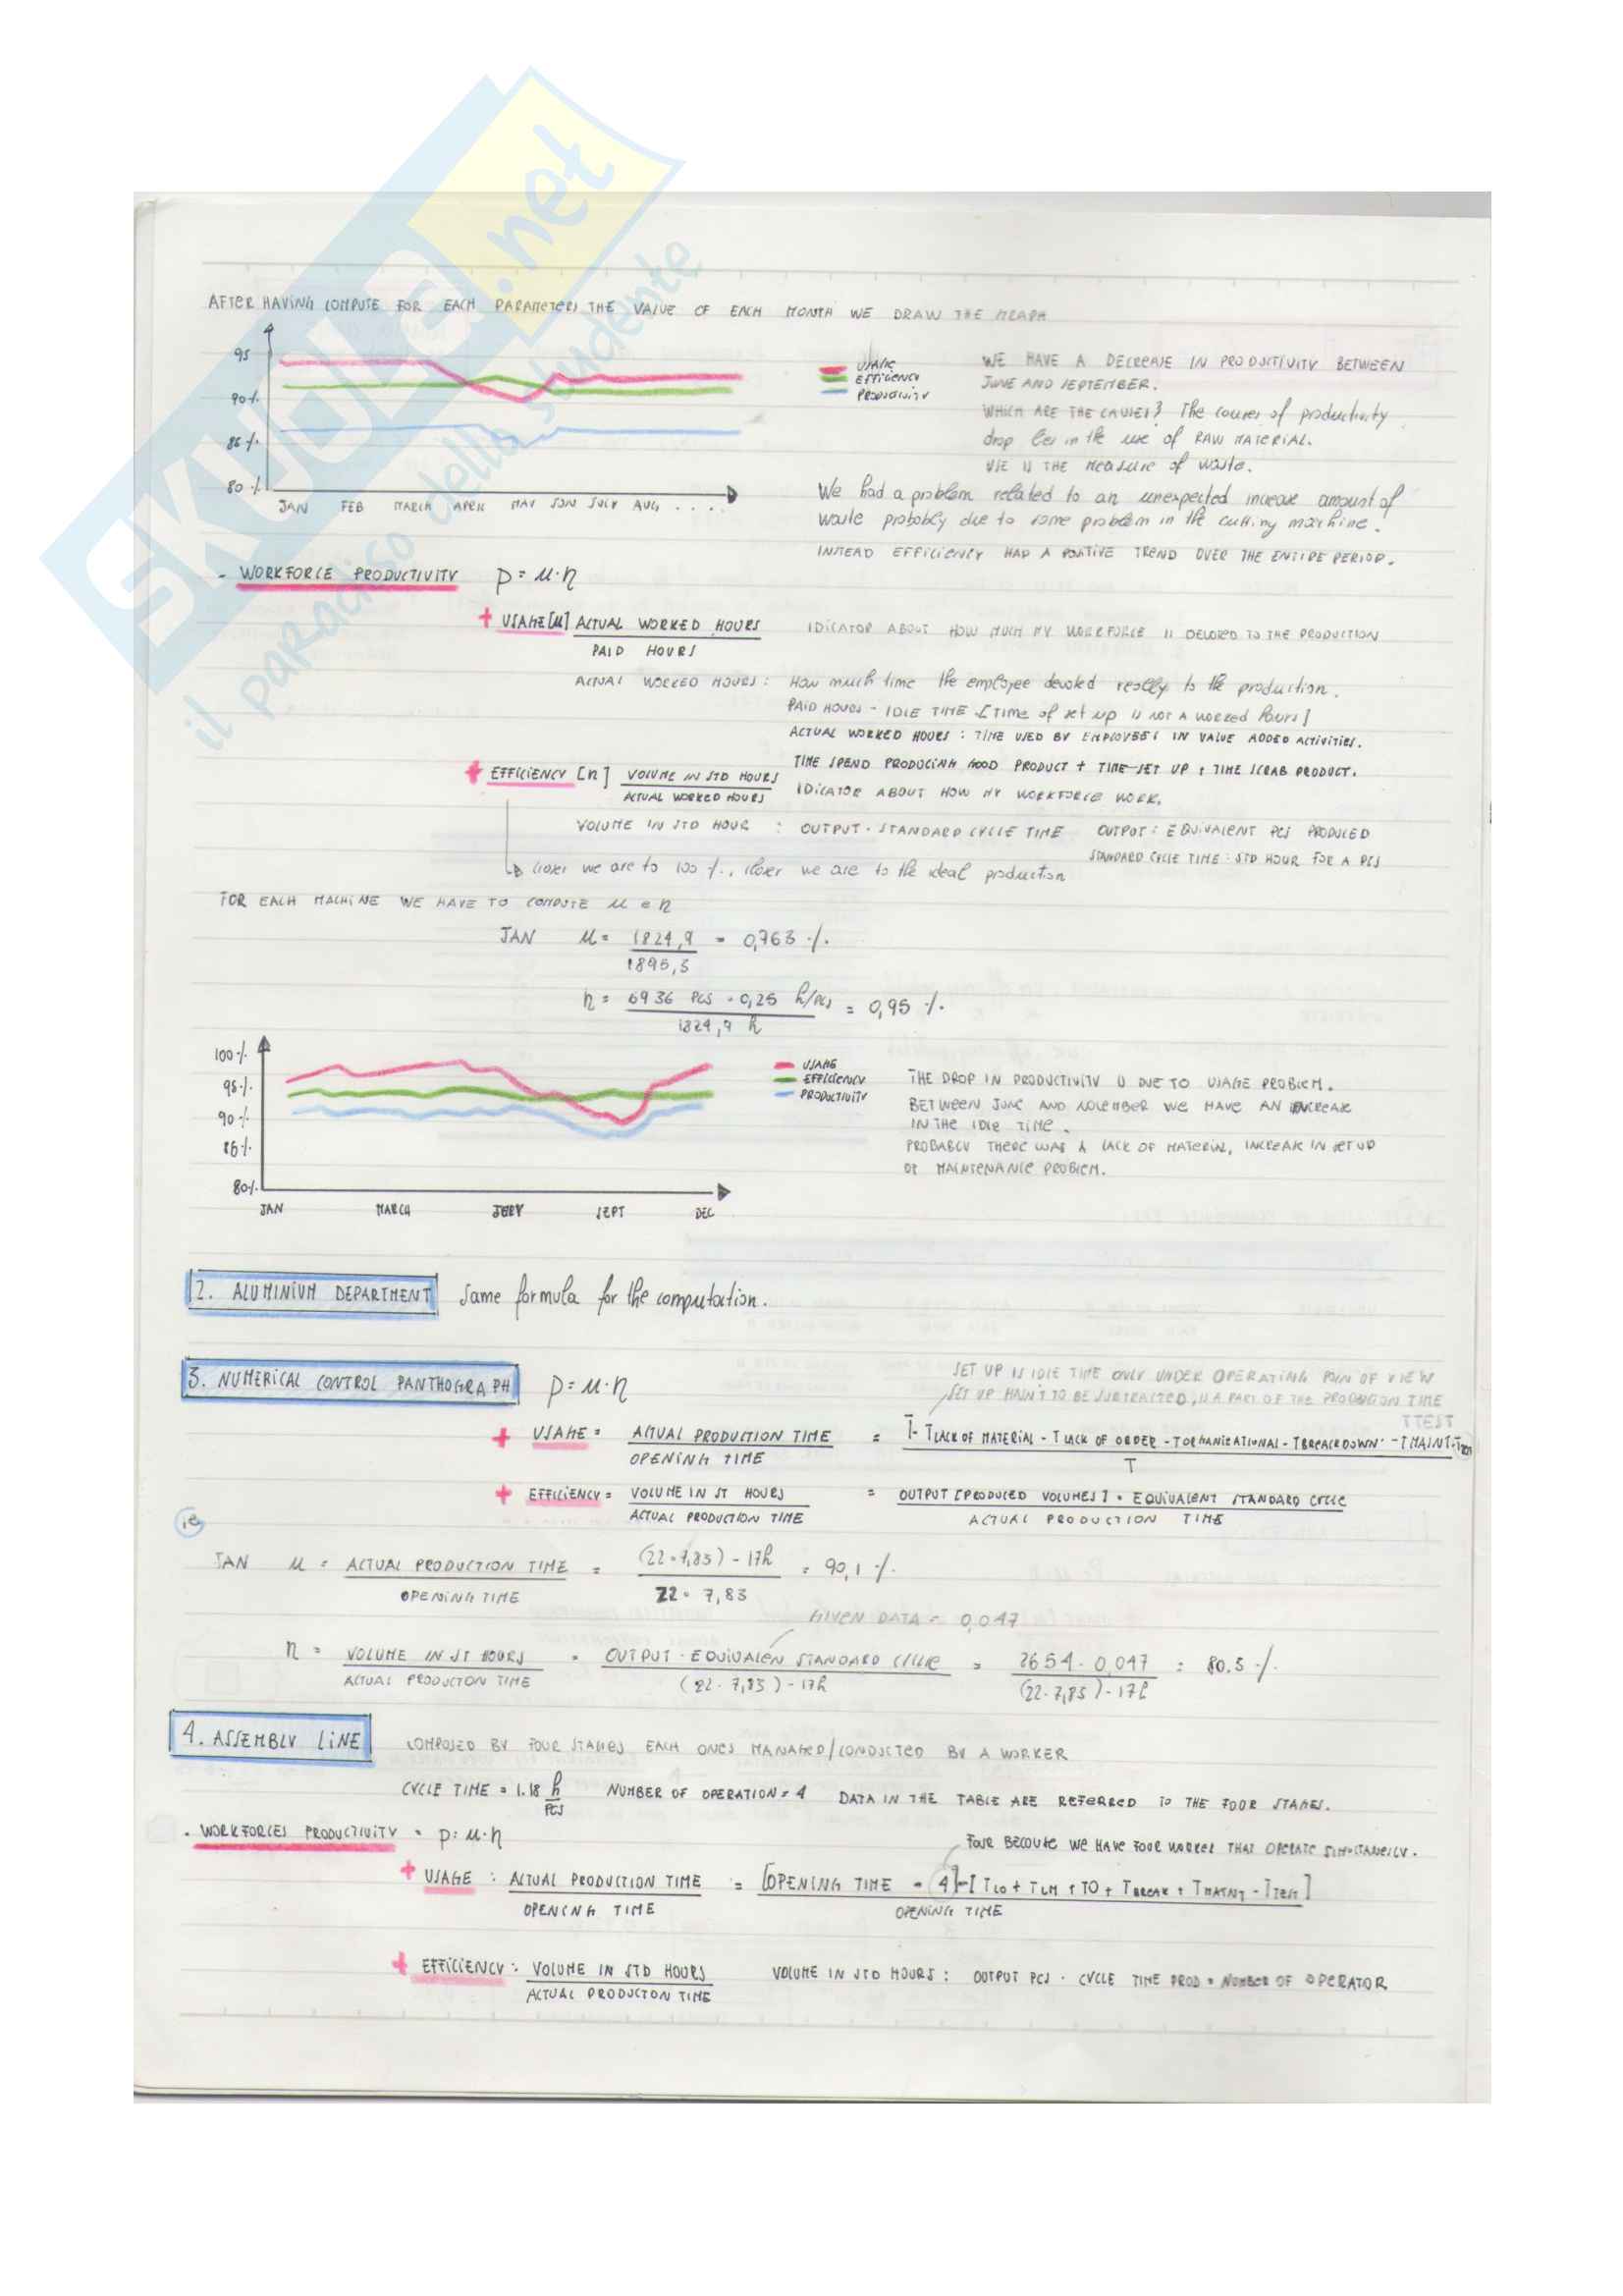 SKUOLA.net
il paradiso dello studente
AFTER HAVING COMPUTE FOR EACH PARAMETERS THE VALUE OF EACH MONTH WE DRAW THE GRAPH
95
90 %
85 %
80 %
JAN FEB MARCH APRIL MAY JUN JULY AUG . . . .
USAGE
EFFICIENCY
PRODUCTIVITY
WE HAVE A DECREASE IN PRODUCTIVITY BETWEEN
JUNE AND SEPTEMBER.
WHICH ARE THE CAUSES? The causes of productivity
drop lies in the use of RAW MATERIAL.
USE IS THE measure of waste.
We had a problem related to an unexpected increase amount of
waste probably due to some problem in the cutting machine.
INSTEAD EFFICIENCY HAD A POSITIVE TREND OVER THE ENTIRE PERIOD.
- WORKFORCE PRODUCTIVITY p = μ · η
+ USAGE [μ] ACTUAL WORKED HOURS
PAID HOURS
IDICATOR ABOUT HOW MUCH MY WORKFORCE IS DEVOTED TO THE PRODUCTION
ACTUAL WORKED HOURS : How much time the employee devoted really to the production.
PAID HOURS - IDLE TIME [Time of set up is NOT A WORKED hours]
ACTUAL WORKED HOURS : TIME USED BY EMPLOYEES IN VALUE ADDED ACTIVITIES.
TIME SPEND PRODUCING GOOD PRODUCT + TIME SET UP + TIME SCRAB PRODUCT.
+ EFFICIENCY [η] VOLUME IN STD HOURS
ACTUAL WORKED HOURS
IDICATOR ABOUT HOW MY WORKFORCE WORK.
VOLUME IN STD HOUR : OUTPUT · STANDARD CYCLE TIME OUTPUT : EQUIVALENT PCS PRODUCED
STANDARD CYCLE TIME : STD HOUR FOR A PCS
closer we are to 100 %, closer we are to the ideal production
FOR EACH MACHINE WE HAVE TO COMPUTE μ e η
JAN μ = 1824,9 = 0,963 %
1895,5
η = 6936 PCS · 0,25 h/PCS = 0,95 %
1824,9 h
100 %
95 %
90 %
85 %
80 %
JAN MARCH JULY SEPT DEC
USAGE
EFFICIENCY
PRODUCTIVITY
THE DROP IN PRODUCTIVITY IS DUE TO USAGE PROBLEM.
BETWEEN JUNE AND NOVEMBER WE HAVE AN INCREASE
IN THE IDLE TIME.
PROBABLY THERE WAS A LACK OF MATERIAL, INCREASE IN SET UP
OR MAINTENANCE PROBLEM.
2. ALUMINIUM DEPARTMENT Same formula for the computation.
3. NUMERICAL CONTROL PANTHOGRAPH p = μ · η
SET UP IS IDLE TIME ONLY UNDER OPERATING POIN OF VIEW
SET UP HASN'T TO BE SUBTRACTED, IS A PART OF THE PRODUCTION TIME
TTEST
+ USAGE = ACTUAL PRODUCTION TIME = T - TLACK OF MATERIAL - TLACK OF ORDER - TORGANIZATIONAL - TBREAKDOWN - TMAINT - TTEST
OPENING TIME T
+ EFFICIENCY = VOLUME IN ST HOURS = OUTPUT [PRODUCED VOLUMES] · EQUIVALENT STANDARD CYCLE
ACTUAL PRODUCTION TIME ACTUAL PRODUCTION TIME
ie
JAN μ = ACTUAL PRODUCTION TIME = (22 · 7,83) - 17h = 90,1 %
OPENING TIME 22 · 7,83
GIVEN DATA = 0,047
η = VOLUME IN ST HOURS = OUTPUT · EQUIVALEN STANDARD CYCLE = 2654 · 0,047 = 80.5 %
ACTUAL PRODUCTON TIME (22 · 7,83) - 17h (22 · 7,83) - 17h
4. ASSEMBLY LINE COMPOSED BY FOUR STAGES EACH ONES MANAGED/CONDUCTED BY A WORKER
CYCLE TIME = 1.18 h/PCS NUMBER OF OPERATION = 4 DATA IN THE TABLE ARE REFERRED TO THE FOUR STAGES.
· WORKFORCES PRODUCTIVITY · p = μ · η
FOUR BECAUSE WE HAVE FOUR WORKER THAT OPERATE SIMULTANEILY.
+ USAGE : ACTUAL PRODUCTION TIME = [OPENING TIME · 4] - [TLO + TLM + TO + TBREAK + TMAINT - TTEST]
OPENING TIME OPENING TIME
+ EFFICIENCY : VOLUME IN STD HOURS VOLUME IN STD HOURS : OUTPUT PCS · CYCLE TIME PROD · NUMBER OF OPERATOR
ACTUAL PRODUCTON TIME